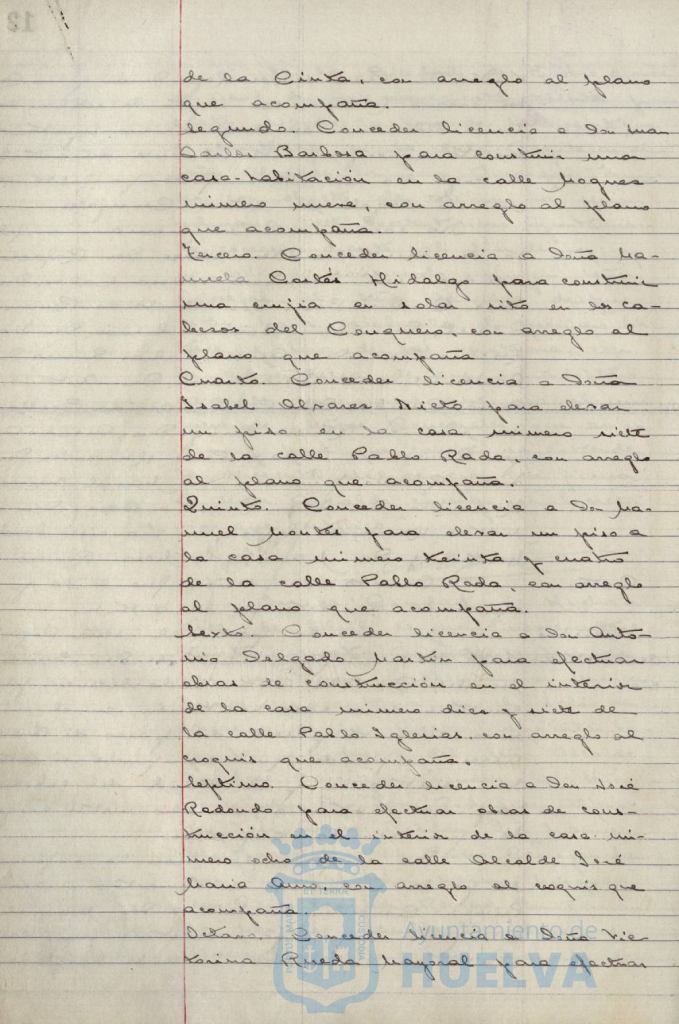 de la Cinta, con arreglo al plano
que acompaña.
Segundo. Conceder licencia a don
Carlos Barbosa para construir una
casa-habitación en la calle Moguer
número nueve, con arreglo al plano
que acompaña.
Tercero. Conceder licencia a doña Ma-
nuela Cortés Hidalgo para construir
una en solar sito en los ca-
bezos del Conquero, con arreglo al
plano que acompaña
Cuarto. Conceder licencia a doña
Isabel Alvarez Nieto para elevar
un piso en la casa número siete
de la calle Pablo Rada, con arreglo
al plano que acompaña.
Quinto. Conceder licencia a don Ma-
nuel Montes para elevar un piso a
la casa número treinta y cuatro
de la calle Pablo Rada, con arreglo
al plano que acompaña.
Sexto. Conceder licencia a don Anto-
nio Delgado Martín para efectuar
obras de construcción en el interior
de la casa número diez y siete de
la calle Pablo Iglesias, con arreglo al
croquis que acompaña.
Septimo. Conceder licencia a don José
Redondo para efectuar obras de cons-
trucción en el interior de la casa nú-
mero ocho de la calle Alcalde José
Maria Amo, con arreglo al croquis que
acompaña.
Octavo. Conceder licencia a doña Vic-
torina Rueda Mayoral para efectuar
Ayuntamiento de
HUELVA